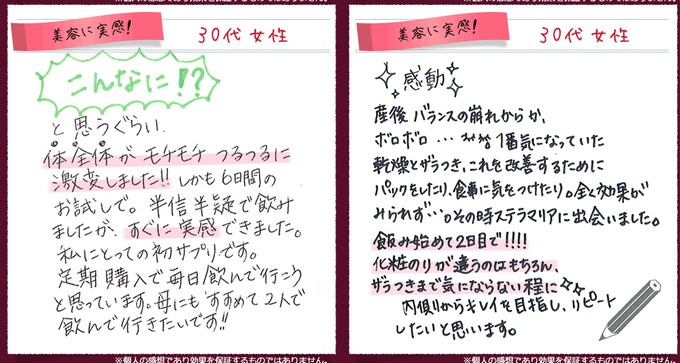 ※個人の感想であり効果を保証するものではありません。
美容に実感!
30代 女性
こんなに!?
と思うぐらい、
体全体がモチモチ つるつるに
激変しました!! しかも6日間の
お試しで。半信半疑で飲み
ましたが、すぐに実感できました。
私にとっての初サプリです。
定期購入で毎日飲んで行こう
と思っています。母にもすすめて2人で
飲んで行きたいです!!
※個人の感想であり効果を保証するものではありません。
美容に実感!
30代 女性
感動
産後バランスの崩れからか、
ボロボロ…
1番気になっていた
乾燥とザラつき、これを改善するために
パックをしたり、食事に気をつけたり。全く効果が
みられず…。その時ステラマリアに出会いました。
飲み始めて2日目で!!!!
化粧のりが違うのはもちろん、
ザラつきまで気にならない程に
内側からキレイを目指し、リピート
したいと思います。
※個人の感想であり効果を保証するものではありません。